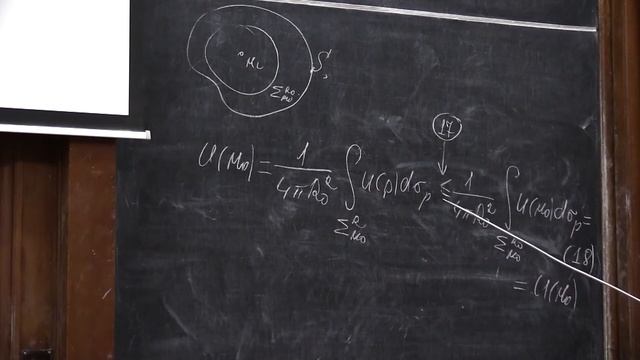 M₀
S
Σ_{M₀}^{R₀}
(17)
u(M₀) = \frac{1}{4πR₀²} ∫_{Σ_{M₀}^{R}} u(p)dσ_p ≤ \frac{1}{4πR₀²} ∫_{Σ_{M₀}^{R₀}} u(M₀)dσ_p =
(18)
= u(M₀)